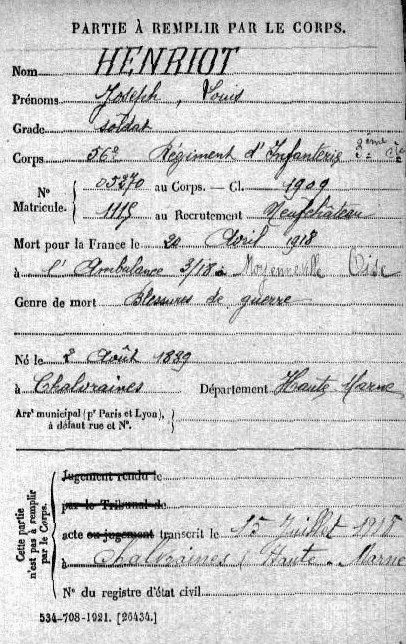 PARTIE À REMPLIR PAR LE CORPS.
Nom HENRIOT
Prénoms Joseph, Louis
Grade soldat
Corps 56e Régiment d'Infanterie Cie
No Matricule. 05270 au Corps. — Cl. 1909
1115 au Recrutement Neufchâteau
Mort pour la France le 20 Avril 1918
à l'Ambulance 3/18 à Moyenneville Oise
Genre de mort Blessures de guerre
Né le 2 Août 1889
à Chalvraines Département Haute Marne
Arrt municipal (pr Paris et Lyon), à défaut rue et No.
Cette partie n'est pas à remplir par le Corps.
Jugement rendu le
par le Tribunal de
acte ou jugement transcrit le 15 Juillet 1918
à Chalvraines (Haute-Marne
No du registre d'état civil
534-708-1921. [26434.]